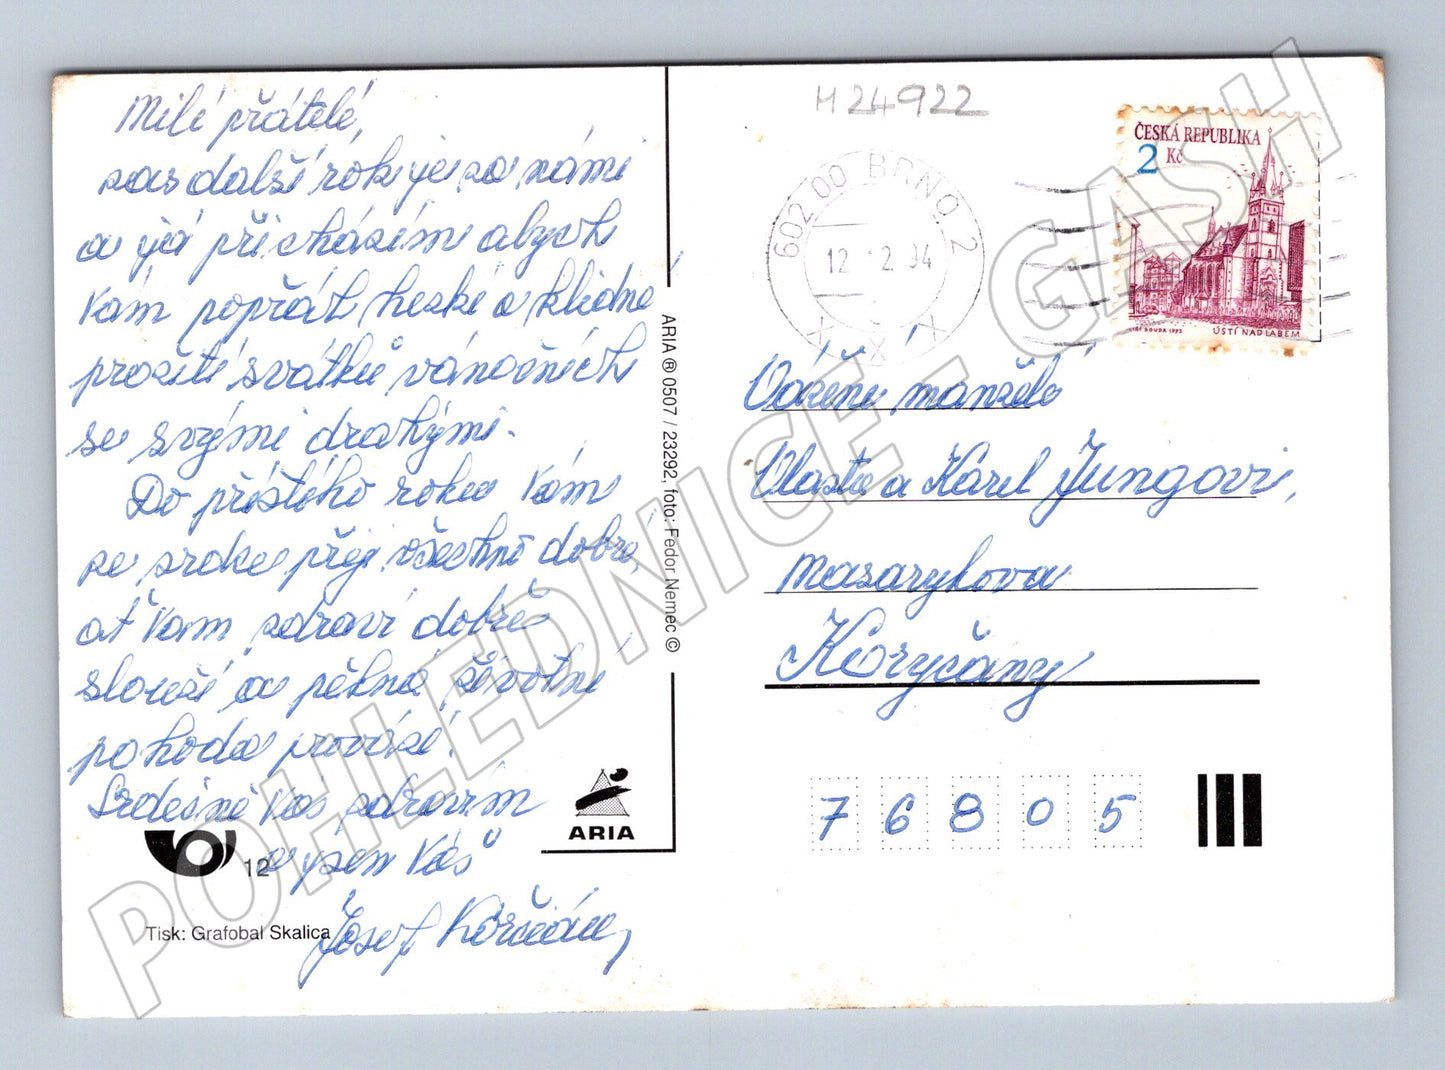 Milí přátelé,
zas další rok je za námi
a já přicházím abych
Vám popřál hezké a klidné
prožití svátků vánočních
se svými drahými.
Do příštího roku Vám
ze srdce přeji všechno dobré,
ať Vám zdraví dobře
slouží a pěkná životní
pohoda provází.
Srdečně Vás zdravím
a jsem Váš
Josef
12
Tisk: Grafobal Skalica
ARIA ® 0507 / 23292, foto: Fedor Nemec ©
ARIA
H 24922
602 00 BRNO 2
12. 12. 94
ČESKÁ REPUBLIKA
2 Kč
JIŘÍ BOUDA 1993 ÚSTÍ NAD LABEM
Vážení manželé
Vlasta a Karel Jungovi,
Masarykova
Koryčany
76805
POHLEDNICE - GASH